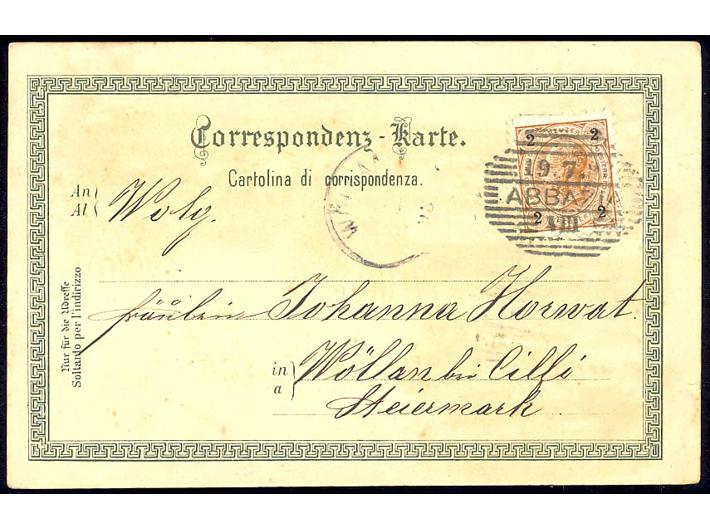 Correspondenz-Karte.
Cartolina di corrispondenza.
An
Al
Wolg.
Fräulein Johanna Horwat.
in
a
Wöllan bei Cilli
Steiermark
Nur für die Adresse
Soltanto per l'indirizzo
2 2
19.7
ABBAZIA
2 2